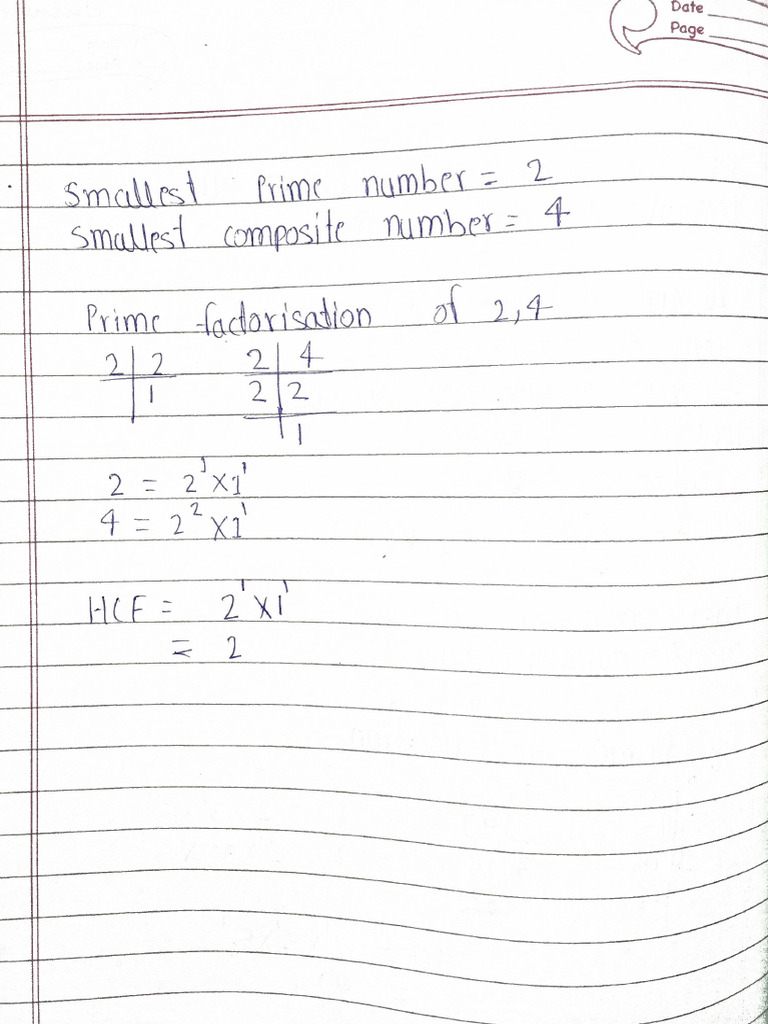 Date
Page
Smallest Prime number = 2
Smallest composite number = 4
Prime factorisation of 2,4
2 | 2   2 | 4
1   2 | 2
1
2 = 2¹ × 1¹
4 = 2² × 1¹
HCF = 2¹ × 1¹
= 2